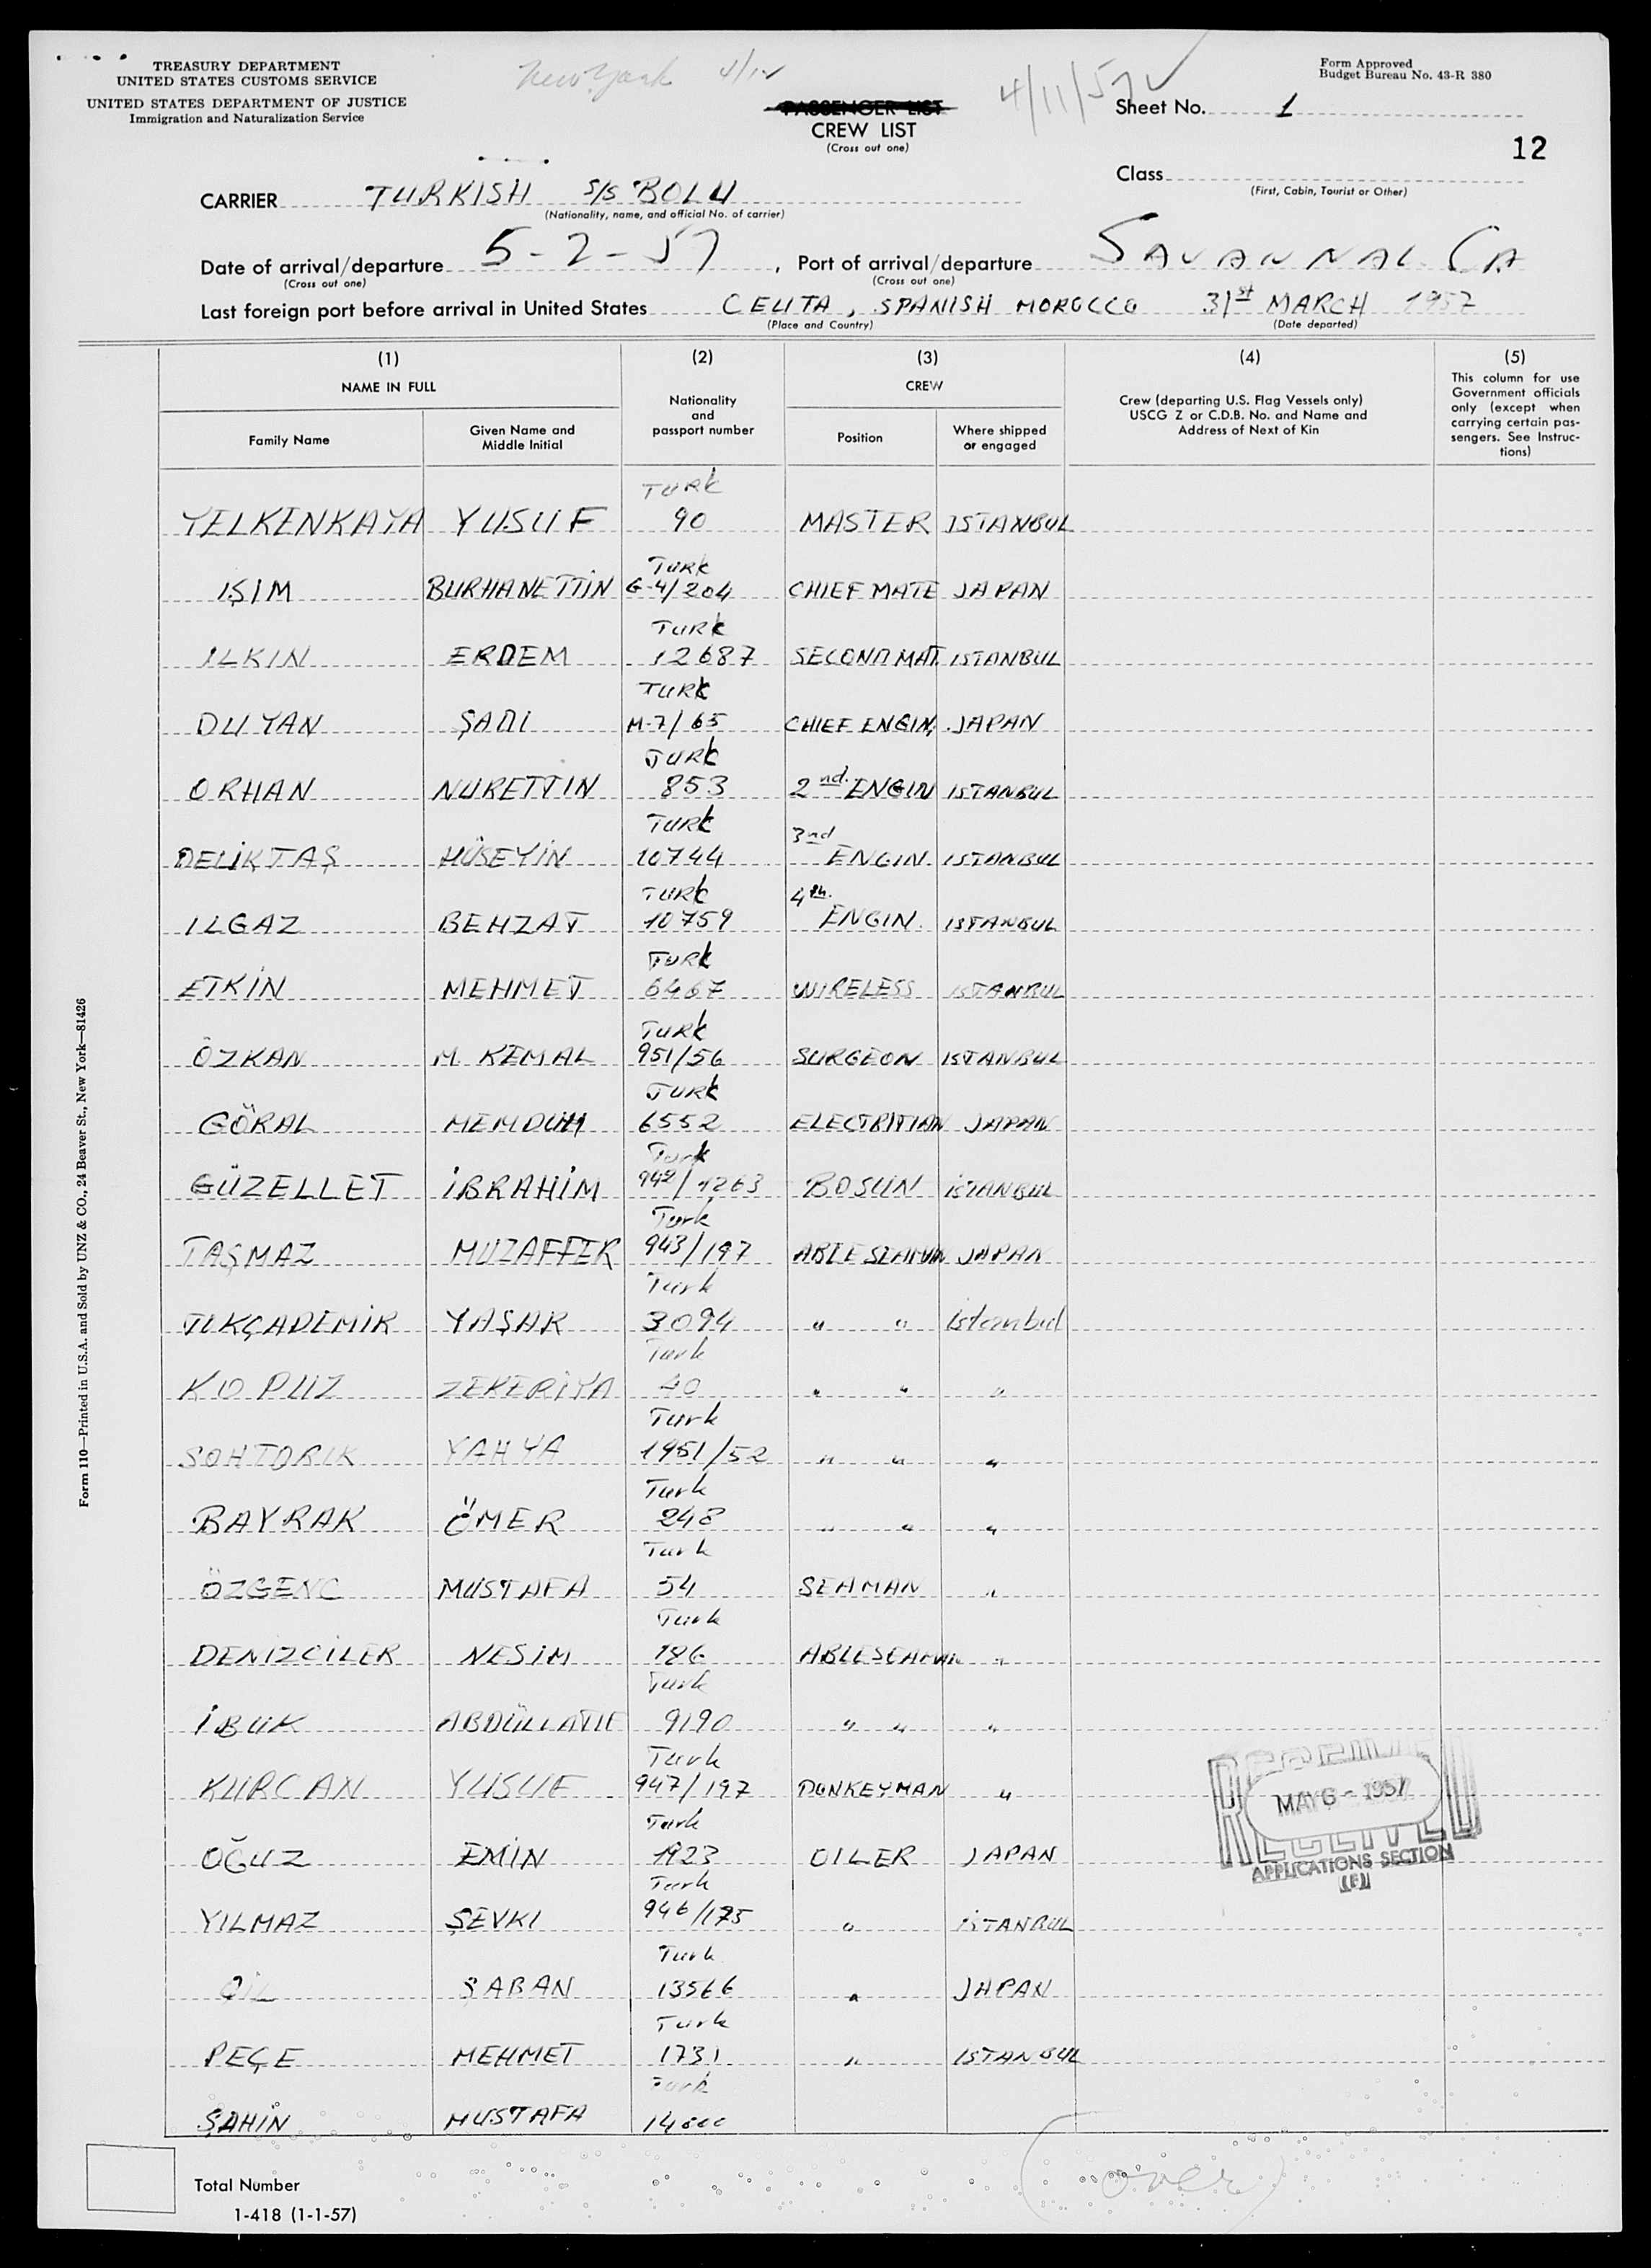 TREASURY DEPARTMENT
UNITED STATES CUSTOMS SERVICE
UNITED STATES DEPARTMENT OF JUSTICE
Immigration and Naturalization Service
New York 4/12
4/11/57
PASSENGER LIST
CREW LIST
(Cross out one)
Form Approved
Budget Bureau No. 43-R 380
Sheet No. 1
12
Class
(First, Cabin, Tourist or Other)
CARRIER TURKISH S/S BOLU
(Nationality, name, and official No. of carrier)
Date of arrival/departure 5-2-57, Port of arrival/departure SAVANNAL GA
(Cross out one) (Cross out one)
Last foreign port before arrival in United States CEUTA, SPANISH MOROCCO 31st MARCH 1957
(Place and Country) (Date departed)
(1) (2) (3) (4) (5)
NAME IN FULL
Family Name
Given Name and Middle Initial
Nationality and passport number
CREW
Position
Where shipped or engaged
Crew (departing U.S. Flag Vessels only)
USCG Z or C.D.B. No. and Name and
Address of Next of Kin
This column for use
Government officials
only (except when
carrying certain pas-
sengers. See Instruc-
tions)
TURK
YELKENKAYA YUSUF 90 MASTER ISTANBUL
TURK
IŞIM BURHANETTİN G-4/204 CHIEF MATE JAPAN
TURK
ILKIN ERDEM 12687 SECOND MAT. ISTANBUL
TURK
DUYAN ŞADI M-7/65 CHIEF ENGIN. JAPAN
TURK
ORHAN NURETTIN 853 2nd. ENGIN ISTANBUL
TURK 3nd
DELİKTAŞ HÜSEYİN 10744 ENGIN. ISTANBUL
TURK 4th.
ILGAZ BEHZAT 10759 ENGIN. ISTANBUL
TURK
ETKİN MEHMET 6467 WIRELESS ISTANBUL
TURK
ÖZKAN M. KEMAL 951/56 SURGEON ISTANBUL
TURK
GÖRAL MEMDUH 6552 ELECTRITIAN JAPAN
Turk
GÜZELLET İBRAHİM 942/1263 BOSUN İSTANBUL
Turk
TAŞMAZ MUZAFFER 943/197 ABLE SEAMAN JAPAN
Turk
TUKÇADEMİR YAŞAR 3094 " " istanbul
Turk
KOPUZ ZEKERİYA 40 " " "
Turk
SOHTORIK YAHYA 1951/52 " " "
Turk
BAYRAK ÖMER 248 " " "
Turk
ÖZGENC MUSTAFA 54 SEAMAN "
Turk
DENIZCİLER NESİM 186 ABLESEAMAN "
Turk
İBUK ABDÜLLATIF 9190 " " "
Turk
KURCAN YUSUF 947/197 DONKEYMAN "
Turk
OĞUZ EMİN 1923 OILER JAPAN
Turk
YILMAZ ŞEVKI 946/175 " İSTANBUL
Turk
ŞABAN 13566 " JAPAN
Turk
PEÇE MEHMET 1731 " ISTANBUL
Turk
ŞAHİN MUSTAFA 14000
RECEIVED
MAY 6 - 1957
RECEIVED
APPLICATIONS SECTION
(over)
Total Number
1-418 (1-1-57)
Form 110—Printed in U.S.A. and Sold by UNZ & CO., 24 Beaver St., New York—81426